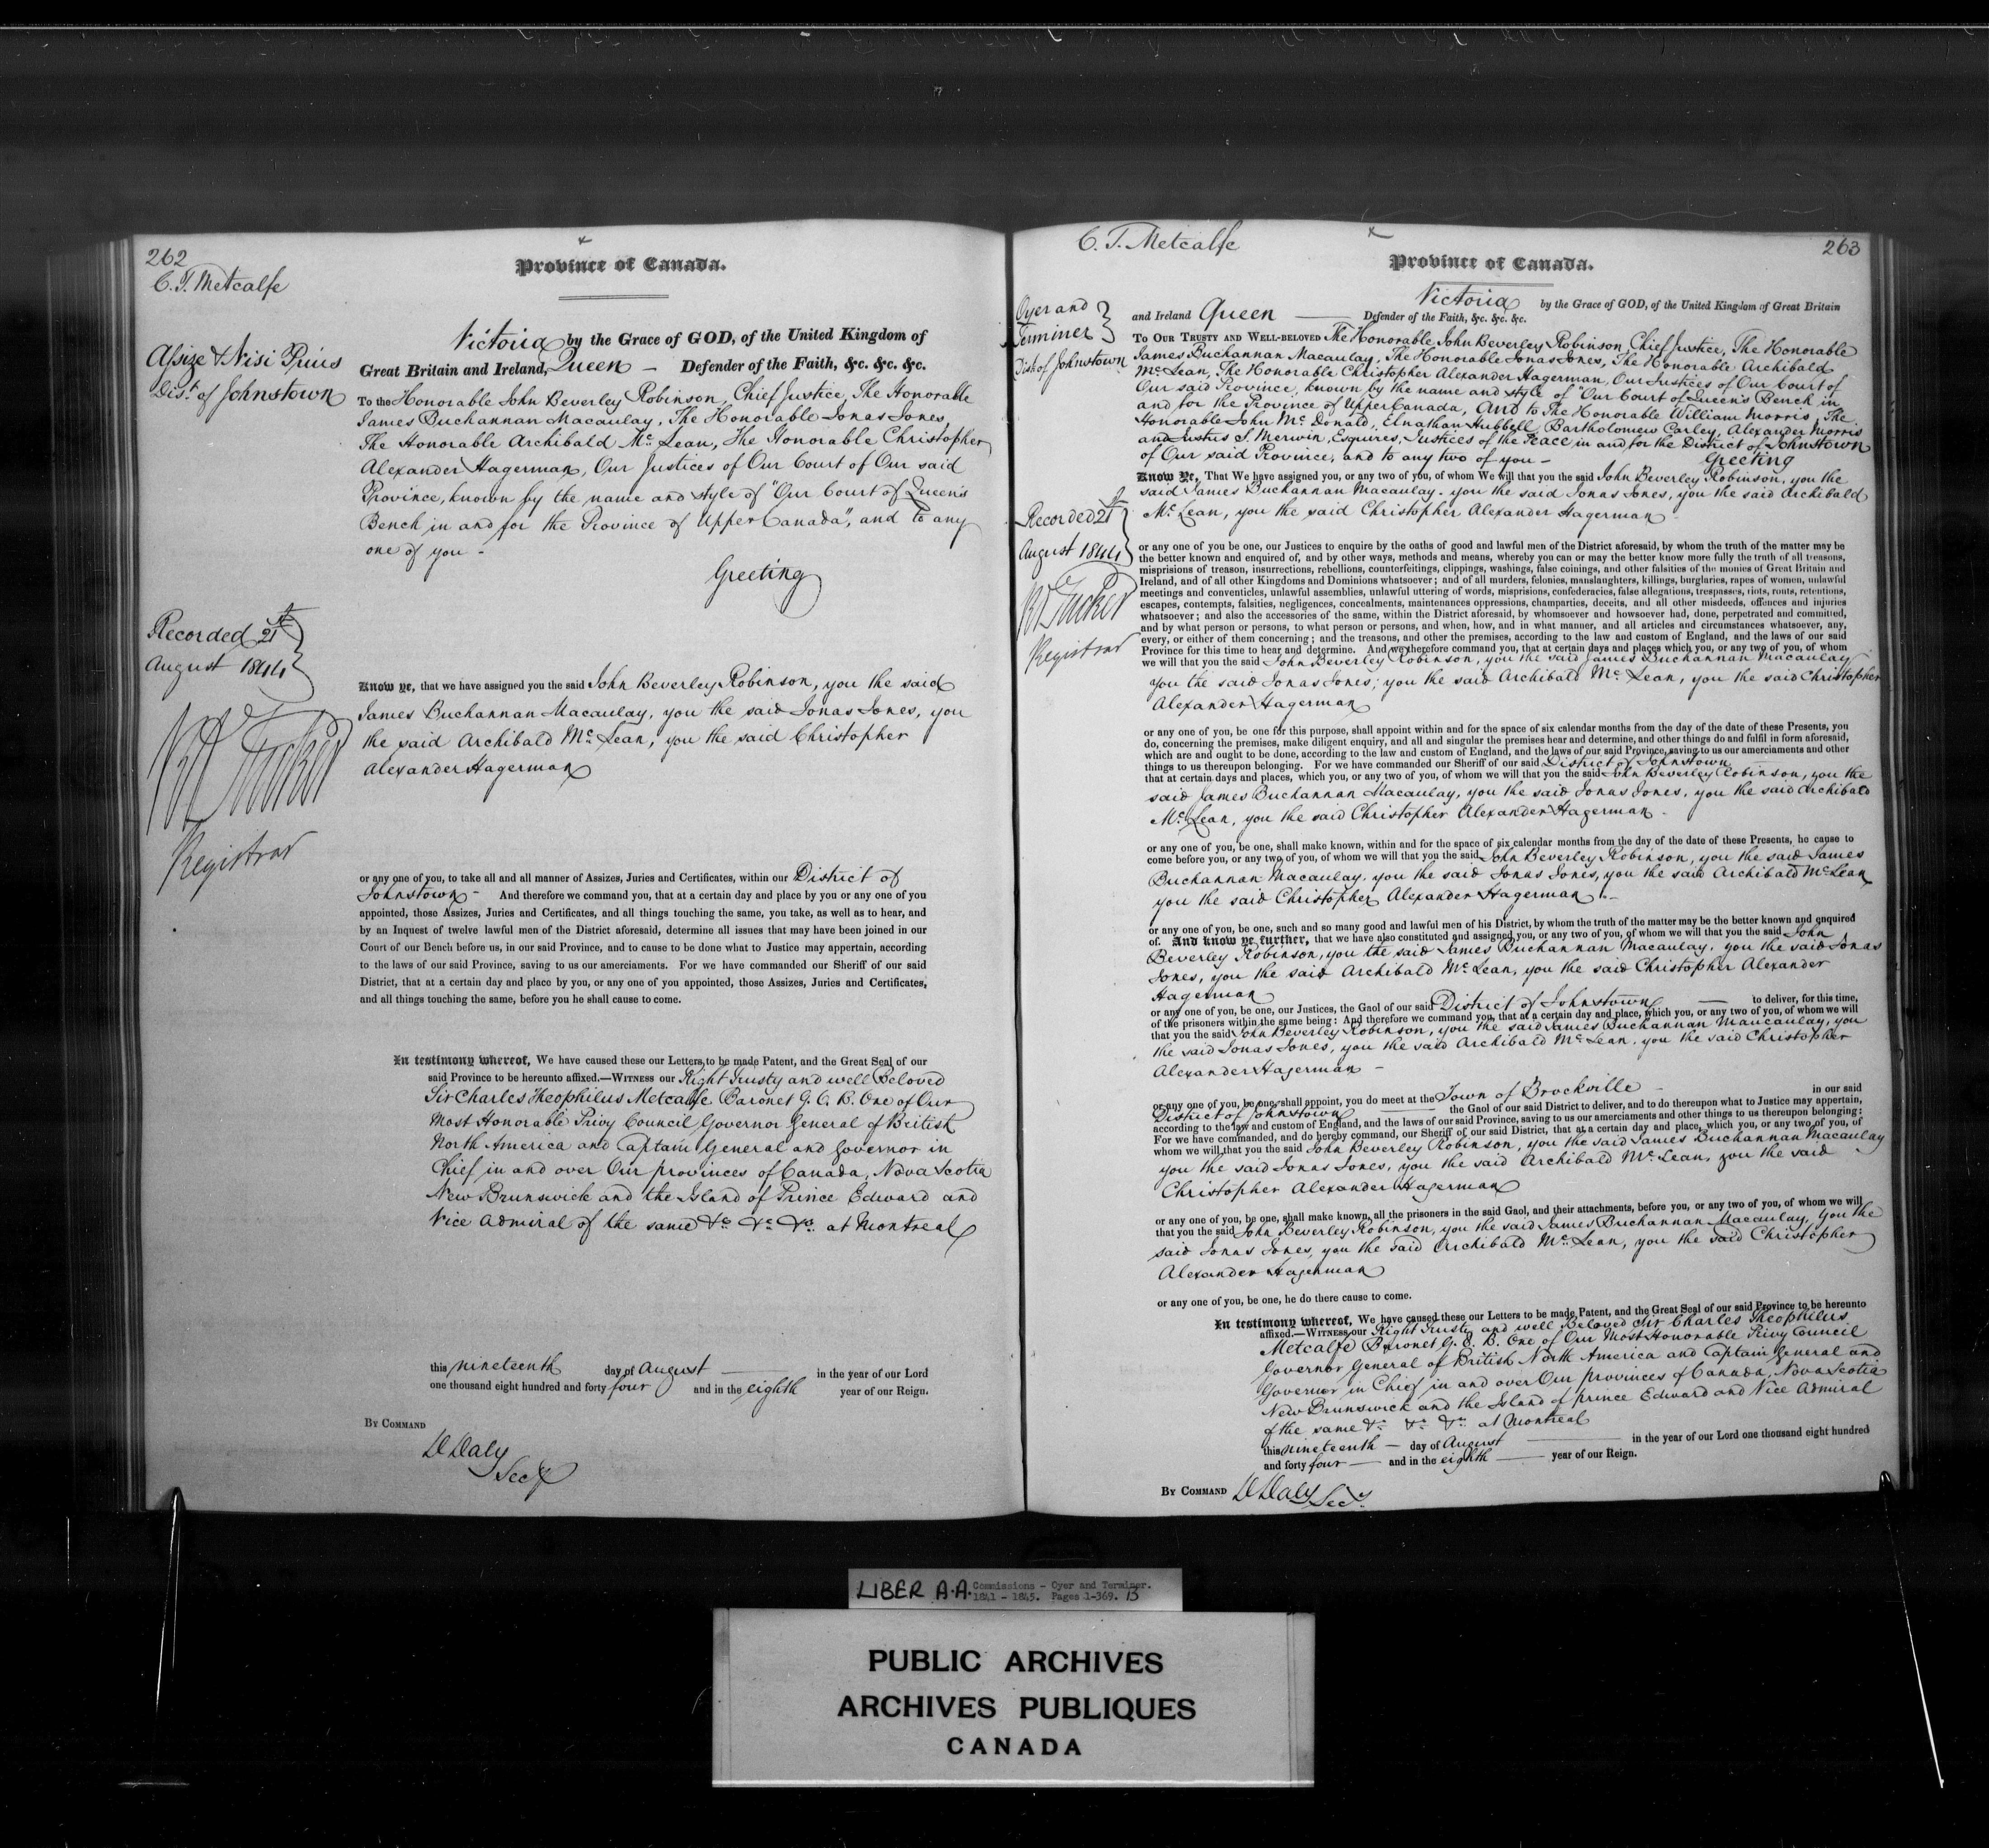 262
C. T. Metcalfe
Province of Canada.
Assize & Nisi Prius
Dist. of Johnstown
Victoria by the Grace of GOD, of the United Kingdom of
Great Britain and Ireland, Queen — Defender of the Faith, &c. &c. &c.
To the Honorable John Beverley Robinson, Chief Justice, The Honorable
James Buchannan Macaulay, The Honorable Jonas Jones,
The Honorable Archibald Mc Lean, The Honorable Christopher
Alexander Hagerman, Our Justices of Our Court of Our said
Province, known by the name and style of "Our Court of Queen's
Bench in and for the Province of Upper Canada", and to any
one of you -
Greeting
Recorded 21st
August 1844
Tucker
Registrar
Know ye, that we have assigned you the said John Beverley Robinson, you the said
James Buchannan Macaulay, you the said Jonas Jones, you
the said Archibald Mc Lean, you the said Christopher
Alexander Hagerman
or any one of you, to take all and all manner of Assizes, Juries and Certificates, within our District of
Johnstown - And therefore we command you, that at a certain day and place by you or any one of you
appointed, those Assizes, Juries and Certificates, and all things touching the same, you take, as well as to hear, and
by an Inquest of twelve lawful men of the District aforesaid, determine all issues that may have been joined in our
Court of our Bench before us, in our said Province, and to cause to be done what to Justice may appertain, according
to the laws of our said Province, saving to us our amerciaments. For we have commanded our Sheriff of our said
District, that at a certain day and place by you, or any one of you appointed, those Assizes, Juries and Certificates,
and all things touching the same, before you he shall cause to come.
In testimony whereof, We have caused these our Letters to be made Patent, and the Great Seal of our
said Province to be hereunto affixed.—WITNESS our Right Trusty and well Beloved
Sir Charles Theophilus Metcalfe Baronet G. C. B. One of Our
Most Honorable Privy Council Governor General of British
North America and Captain General and Governor in
Chief in and over Our provinces of Canada, Nova Scotia
New Brunswick and the Island of Prince Edward and
Vice Admiral of the same &c &c &c at Montreal
this nineteenth day of August — in the year of our Lord
one thousand eight hundred and forty four and in the eighth year of our Reign.
BY COMMAND
D Daly
Secy
C. T. Metcalfe
263
Province of Canada.
Oyer and
Terminer
Dist of Johnstown
Victoria by the Grace of GOD, of the United Kingdom of Great Britain
and Ireland Queen — Defender of the Faith, &c. &c. &c.
TO OUR TRUSTY AND WELL-BELOVED The Honorable John Beverley Robinson Chief Justice, The Honorable
James Buchannan Macaulay, The Honorable Jonas Jones, The Honorable Archibald
Mc Lean, The Honorable Christopher Alexander Hagerman, Our Justices of Our Court of
Our said Province, known by the name and style of "Our Court of Queen's Bench in
and for the Province of Upper Canada, And to The Honorable William Morris, The
Honorable John Mc Donald, Elnathan Hubbell, Bartholomew Carley, Alexander Morris
and Justus S. Merwin, Esquires, Justices of the Peace in and for the District of Johnstown
of Our said Province, and to any two of you -
Greeting
Know Ye, That We have assigned you, or any two of you, of whom We will that you the said John Beverley Robinson, you the
said James Buchannan Macaulay, you the said Jonas Jones, you the said Archibald
Mc Lean, you the said Christopher Alexander Hagerman
Recorded 21st
August 1844
Tucker
Registrar
or any one of you be one, our Justices to enquire by the oaths of good and lawful men of the District aforesaid, by whom the truth of the matter may be
the better known and enquired of, and by other ways, methods and means, whereby you can or may the better know more fully the truth of all treasons,
misprisions of treason, insurrections, rebellions, counterfeitings, clippings, washings, false coinings, and other falsities of the monies of Great Britain and
Ireland, and of all other Kingdoms and Dominions whatsoever; and of all murders, felonies, manslaughters, killings, burglaries, rapes of women, unlawful
meetings and conventicles, unlawful assemblies, unlawful uttering of words, misprisions, confederacies, false allegations, trespasses, riots, routs, retentions,
escapes, contempts, falsities, negligences, concealments, maintenances oppressions, champarties, deceits, and all other misdeeds, offences and injuries
whatsoever; and also the accessories of the same, within the District aforesaid, by whomsoever and howsoever had, done, perpetrated and committed,
and by what person or persons, to what person or persons, and when, how, and in what manner, and all articles and circumstances whatsoever, any,
every, or either of them concerning; and the treasons, and other the premises, according to the law and custom of England, and the laws of our said
Province for this time to hear and determine. And we therefore command you, that at certain days and places which you, or any two of you, of whom
we will that you the said John Beverley Robinson, you the said James Buchannan Macaulay
you the said Jonas Jones, you the said Archibald Mc Lean, you the said Christopher
Alexander Hagerman
or any one of you, be one for this purpose, shall appoint within and for the space of six calendar months from the day of the date of these Presents, you
do, concerning the premises, make diligent enquiry, and all and singular the premises hear and determine, and other things do and fulfil in form aforesaid,
which are and ought to be done, according to the law and custom of England, and the laws of our said Province, saving to us our amerciaments and other
things to us thereupon belonging. For we have commanded our Sheriff of our said District of Johnstown
that at certain days and places, which you, or any two of you, of whom we will that you the said John Beverley Robinson, you the
said James Buchannan Macaulay, you the said Jonas Jones, you the said Archibald
Mc Lean, you the said Christopher Alexander Hagerman -
or any one of you, be one, shall make known, within and for the space of six calendar months from the day of the date of these Presents, he cause to
come before you, or any two of you, of whom we will that you the said John Beverley Robinson, you the said James
Buchannan Macaulay, you the said Jonas Jones, you the said Archibald Mc Lean
you the said Christopher Alexander Hagerman -
or any one of you, be one, such and so many good and lawful men of his District, by whom the truth of the matter may be the better known and enquired
of. And know ye further, that we have also constituted and assigned you, or any two of you, of whom we will that you the said John
Beverley Robinson, you the said James Buchannan Macaulay, you the said Jonas
Jones, you the said Archibald Mc Lean, you the said Christopher Alexander
Hagerman
or any one of you, be one, our Justices, the Gaol of our said District of Johnstown — to deliver, for this time,
of the prisoners within the same being: And therefore we command you, that at a certain day and place, which you, or any two of you, of whom we will
that you the said John Beverley Robinson, you the said James Buchannan Maucaulay, you
the said Jonas Jones, you the said Archibald Mc Lean, you the said Christopher
Alexander Hagerman -
or any one of you, be one, shall appoint, you do meet at the Town of Brockville - in our said
District of Johnstown — the Gaol of our said District to deliver, and to do thereupon what to Justice may appertain,
according to the law and custom of England, and the laws of our said Province, saving to us our amerciaments and other things to us thereupon belonging:
For we have commanded, and do hereby command, our Sheriff of our said District, that at a certain day and place, which you, or any two of you, of
whom we will that you the said John Beverley Robinson, you the said James Buchannan Macaulay
you the said Jonas Jones, you the said Archibald Mc Lean, you the said
Christopher Alexander Hagerman
or any one of you, be one, shall make known, all the prisoners in the said Gaol, and their attachments, before you, or any two of you, of whom we will
that you the said John Beverley Robinson, you the said James Buchannan Macaulay, you the
said Jonas Jones, you the said Archibald Mc Lean, you the said Christopher
Alexander Hagerman
or any one of you, be one, he do there cause to come.
In testimony whereof, We have caused these our Letters to be made Patent, and the Great Seal of our said Province to be hereunto
affixed.—WITNESS our Right Trusty and well Beloved Sir Charles Theophilus
Metcalfe Baronet G. C. B. One of Our Most Honorable Privy Council
Governor General of British North America and Captain General and
Governor in Chief in and over Our provinces of Canada, Nova Scotia
New Brunswick and the Island of prince Edward and Vice Admiral
of the same &c &c &c at Montreal
this nineteenth — day of August — in the year of our Lord one thousand eight hundred
and forty four — and in the eighth — year of our Reign.
BY COMMAND D Daly Secy
LIBER A.A. Commissions - Oyer and Terminer.
1841 - 1845. Pages 1-369. B
PUBLIC ARCHIVES
ARCHIVES PUBLIQUES
CANADA